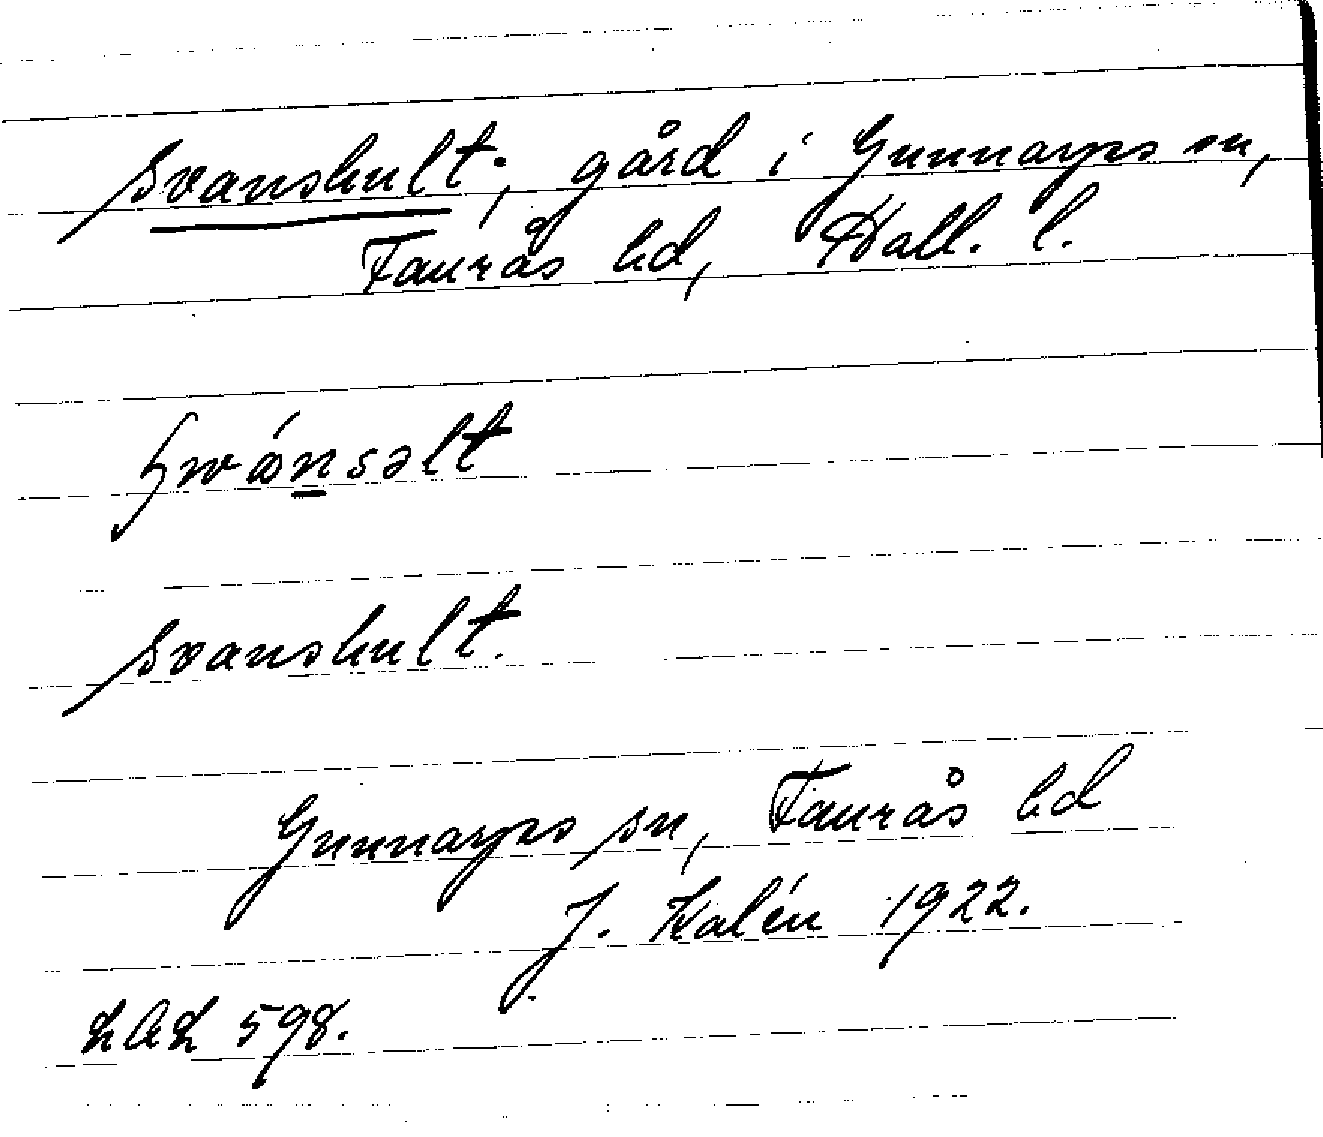 Svanshult; gård i Gunnarps sn,
Faurås hd, Hall. l.
swánsəlt
Svanshult.
Gunnarps sn, Faurås hd
J. Kalén 1922.
LAL 598.